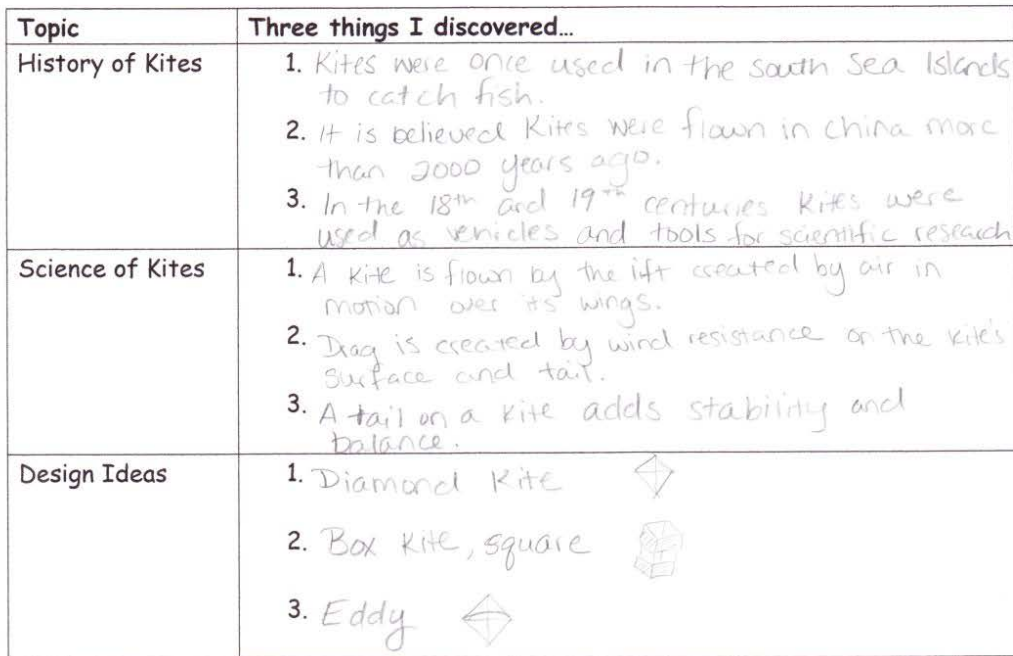 Topic
Three things I discovered...
History of Kites
1. Kites were once used in the South Sea Islands
to catch fish.
2. It is believed Kites were flown in china more
than 2000 years ago.
3. In the 18th and 19th centuries Kites were
used as vehicles and tools for scientific research
Science of Kites
1. A Kite is flown by the lift created by air in
motion over its wings.
2. Drag is created by wind resistance on the kite's
surface and tail.
3. A tail on a Kite adds stability and
balance.
Design Ideas
1. Diamond Kite
2. Box Kite, square
3. Eddy